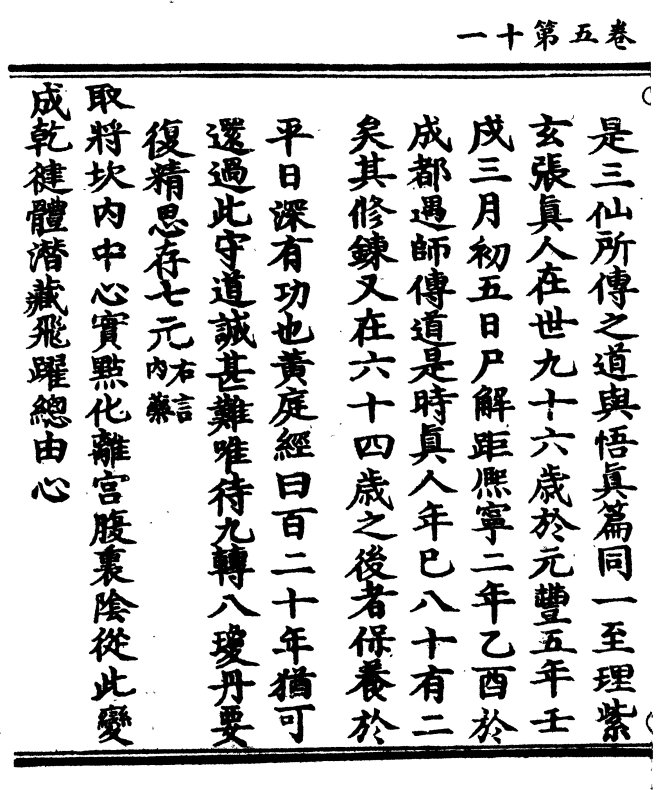 卷五第十一
是三仙所傳之道與悟眞篇同一至理紫
玄張眞人在世九十六歲於元豐五年壬
戌三月初五日尸解距熈寧二年乙酉於
成都遇師傳道是時眞人年巳八十有二
矣其修鍊又在六十四歲之後者保養於
平日深有功也黃庭經曰百二十年猶可
還過此守道誠甚難唯待九轉八瓊丹要
復精思存七元右言內藥
取將坎內中心實㸃化離宮腹裏陰從此變
成乾健體潛藏飛躍總由心